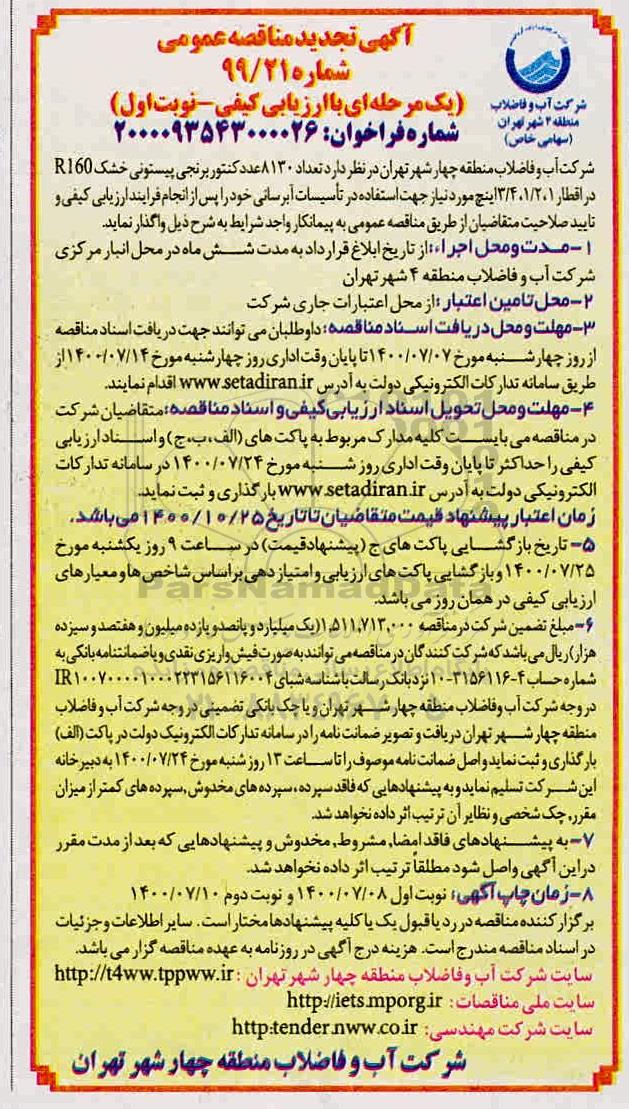 آگهی تجدید مناقصه عمومی
شماره ۹۹/۲۱
(یک مرحله‌ای با ارزیابی کیفی - نوبت اول)
شماره فراخوان: ۲۰۰۰۰۹۳۵۴۳۰۰۰۰۲۶
شرکت آب و فاضلاب
منطقه ۴ شهر تهران
(سهامی خاص)
شرکت آب و فاضلاب منطقه چهار شهر تهران در نظر دارد تعداد ۸۱۳۰ عدد کنتور برنجی پیستونی خشک R160
در اقطار ۳/۴،۱/۲،۱ اینچ مورد نیاز جهت استفاده در تأسیسات آبرسانی خود را پس از انجام فرایند ارزیابی کیفی و
تایید صلاحیت متقاضیان از طریق مناقصه عمومی به پیمانکار واجد شرایط به شرح ذیل واگذار نماید.
۱- مدت و محل اجراء: از تاریخ ابلاغ قرارداد به مدت شش ماه در محل انبار مرکزی
شرکت آب و فاضلاب منطقه ۴ شهر تهران
۲- محل تامین اعتبار: از محل اعتبارات جاری شرکت
۳- مهلت و محل دریافت اسناد مناقصه: داوطلبان می توانند جهت دریافت اسناد مناقصه
از روز چهارشنبه مورخ ۱۴۰۰/۰۷/۰۷ تا پایان وقت اداری روز چهارشنبه مورخ ۱۴۰۰/۰۷/۱۴ از
طریق سامانه تدارکات الکترونیکی دولت به آدرس www.setadiran.ir اقدام نمایند.
۴- مهلت و محل تحویل اسناد ارزیابی کیفی و اسناد مناقصه: متقاضیان شرکت
در مناقصه می بایست کلیه مدارک مربوط به پاکت های (الف،ب،ج) و اسناد ارزیابی
کیفی را حداکثر تا پایان وقت اداری روز شنبه مورخ ۱۴۰۰/۰۷/۲۴ در سامانه تدارکات
الکترونیکی دولت به آدرس www.setadiran.ir بارگذاری و ثبت نماید.
زمان اعتبار پیشنهاد قیمت متقاضیان تا تاریخ ۱۴۰۰/۱۰/۲۵ می باشد.
۵- تاریخ بازگشایی پاکت های ج (پیشنهاد قیمت) در ساعت ۹ روز یکشنبه مورخ
۱۴۰۰/۰۷/۲۵ و بازگشایی پاکت های ارزیابی و امتیازدهی براساس شاخص ها و معیارهای
ارزیابی کیفی در همان روز می باشد.
۶- مبلغ تضمین شرکت در مناقصه ۱,۵۱۱,۷۱۳,۰۰۰ (یک میلیارد و پانصد و یازده میلیون و هفتصد و سیزده
هزار) ریال می باشد که شرکت کنندگان در مناقصه می توانند به صورت فیش واریزی نقدی و یا ضمانتنامه بانکی به
شماره حساب ۴-۳۱۵۶۱۱۶-۱۰ نزد بانک رسالت با شناسه شبای IR۱۰۰۷۰۰۰۰۱۰۰۰۲۲۳۱۵۶۱۱۶۰۰۴
در وجه شرکت آب و فاضلاب منطقه چهار شهر تهران و یا چک بانکی تضمینی در وجه شرکت آب و فاضلاب
منطقه چهار شهر تهران دریافت و تصویر ضمانت نامه را در سامانه تدارکات الکترونیک دولت در پاکت (الف)
بارگذاری و ثبت نماید و اصل ضمانت نامه موصوف را تا ساعت ۱۳ روز شنبه مورخ ۱۴۰۰/۰۷/۲۴ به دبیرخانه
این شرکت تسلیم نماید و به پیشنهادهایی که فاقد سپرده، سپرده های مخدوش, سپرده های کمتر از میزان
مقرر, چک شخصی و نظایر آن ترتیب اثر داده نخواهد شد.
۷- به پیشنهادهای فاقد امضا, مشروط, مخدوش و پیشنهادهایی که بعد از مدت مقرر
در این آگهی واصل شود مطلقاً ترتیب اثر داده نخواهد شد.
۸- زمان چاپ آگهی: نوبت اول ۱۴۰۰/۰۷/۰۸ و نوبت دوم ۱۴۰۰/۰۷/۱۰
برگزار کننده مناقصه در رد یا قبول یک یا کلیه پیشنهادها مختار است. سایر اطلاعات و جزئیات
در اسناد مناقصه مندرج است. هزینه درج آگهی در روزنامه به عهده مناقصه گزار می باشد.
سایت شرکت آب و فاضلاب منطقه چهار شهر تهران: http://t4ww.tppww.ir
سایت ملی مناقصات: http://iets.mporg.ir
سایت شرکت مهندسی: http:tender.nww.co.ir
شرکت آب و فاضلاب منطقه چهار شهر تهران
ParsNamadData